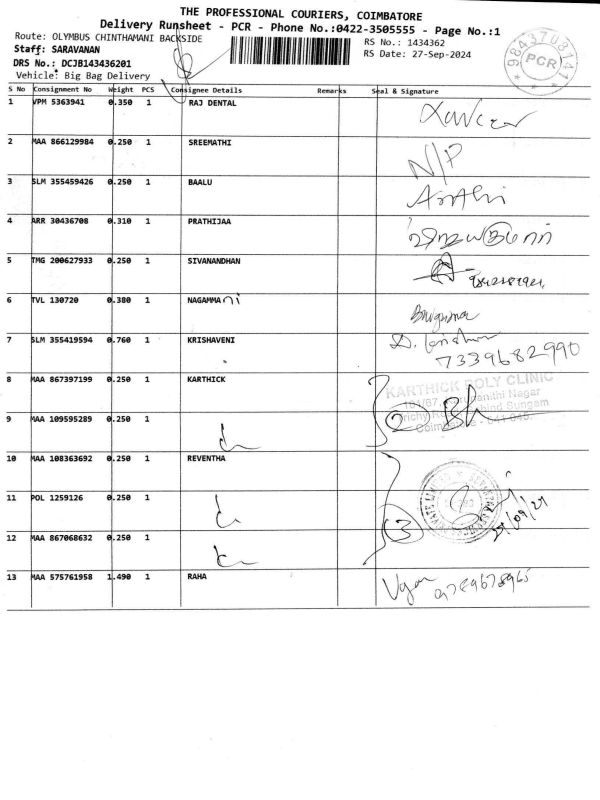 THE PROFESSIONAL COURIERS, COIMBATORE
Delivery Runsheet - PCR - Phone No.:0422-3505555 - Page No.:1
Route: OLYMBUS CHINTHAMANI BACKSIDE
RS No.: 1434362
Staff: SARAVANAN
RS Date: 27-Sep-2024
DRS No.: DCJB143436201
Vehicle: Big Bag Delivery
9843703141
PCR
S No Consignment No Weight PCS Consignee Details Remarks Seal & Signature
1 VPM 5363941 0.350 1 RAJ DENTAL
2 MAA 866129984 0.250 1 SREEMATHI N/P
3 SLM 355459426 0.250 1 BAALU
4 ARR 30436708 0.310 1 PRATHIJAA
5 TMG 200627933 0.250 1 SIVANANDHAN
6 TVL 130720 0.380 1 NAGAMMAni
7 SLM 355419594 0.760 1 KRISHAVENI
7339682990
8 MAA 867397199 0.250 1 KARTHICK
KARTHICK POLY CLINIC
9 MAA 109595289 0.250 1
2
10 MAA 108363692 0.250 1 REVENTHA
11 POL 1259126 0.250 1
3
27/09/24
12 MAA 867068632 0.250 1
13 MAA 575761958 1.490 1 RAHA